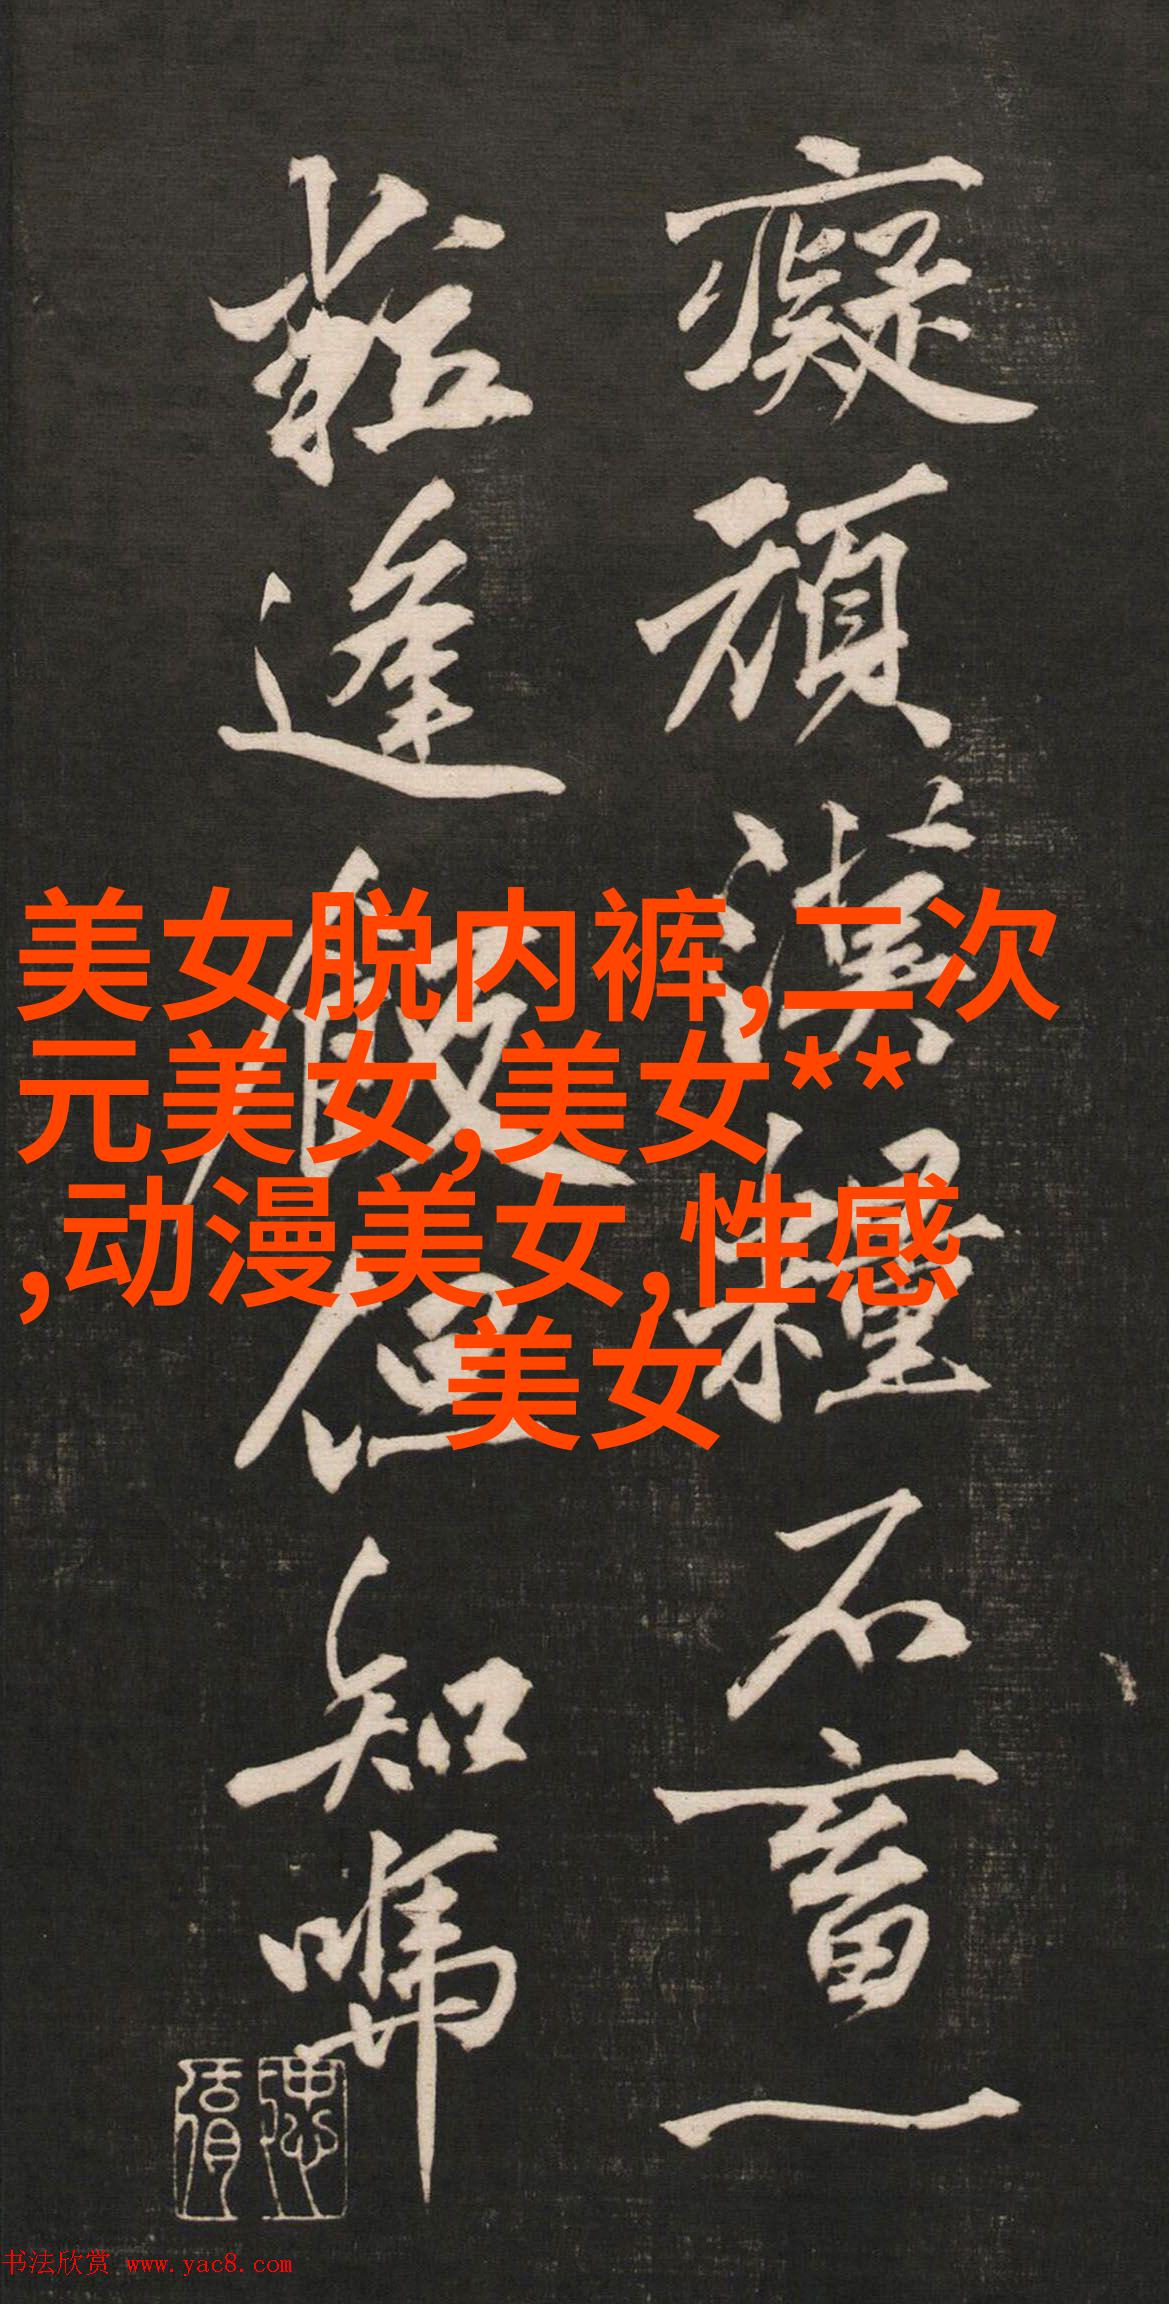 癡頑漢種石畜一
鞋逢飯但知噇
美女脱内裤,二次
元美女,美女**
,动漫美女,性感
美女
书法欣赏 www.yac8.com